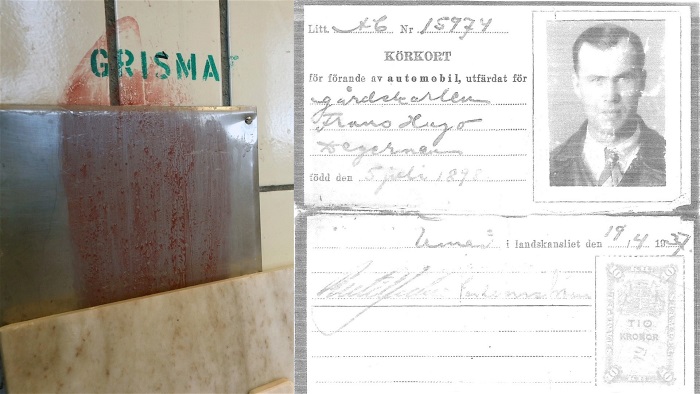 GRISMAT
Litt. AC Nr 15974
KÖRKORT
för förande av automobil, utfärdat för
gårdskarlen
Frans Hugo
Degerman
född den 5 juli 1898
Umeå i landskansliet den 19/4 1937
TIO
KRONOR